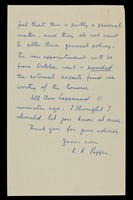 feel that this is partly a personal
matter, and they do not want
to alter their general policy.
The new appointment will be
from October next - provided
the external experts find me
worthy of the honour.
All this happened 10
minutes ago. I thought I
should let you know at once.
Thank you for your advice
Yours ever
K. R. Popper